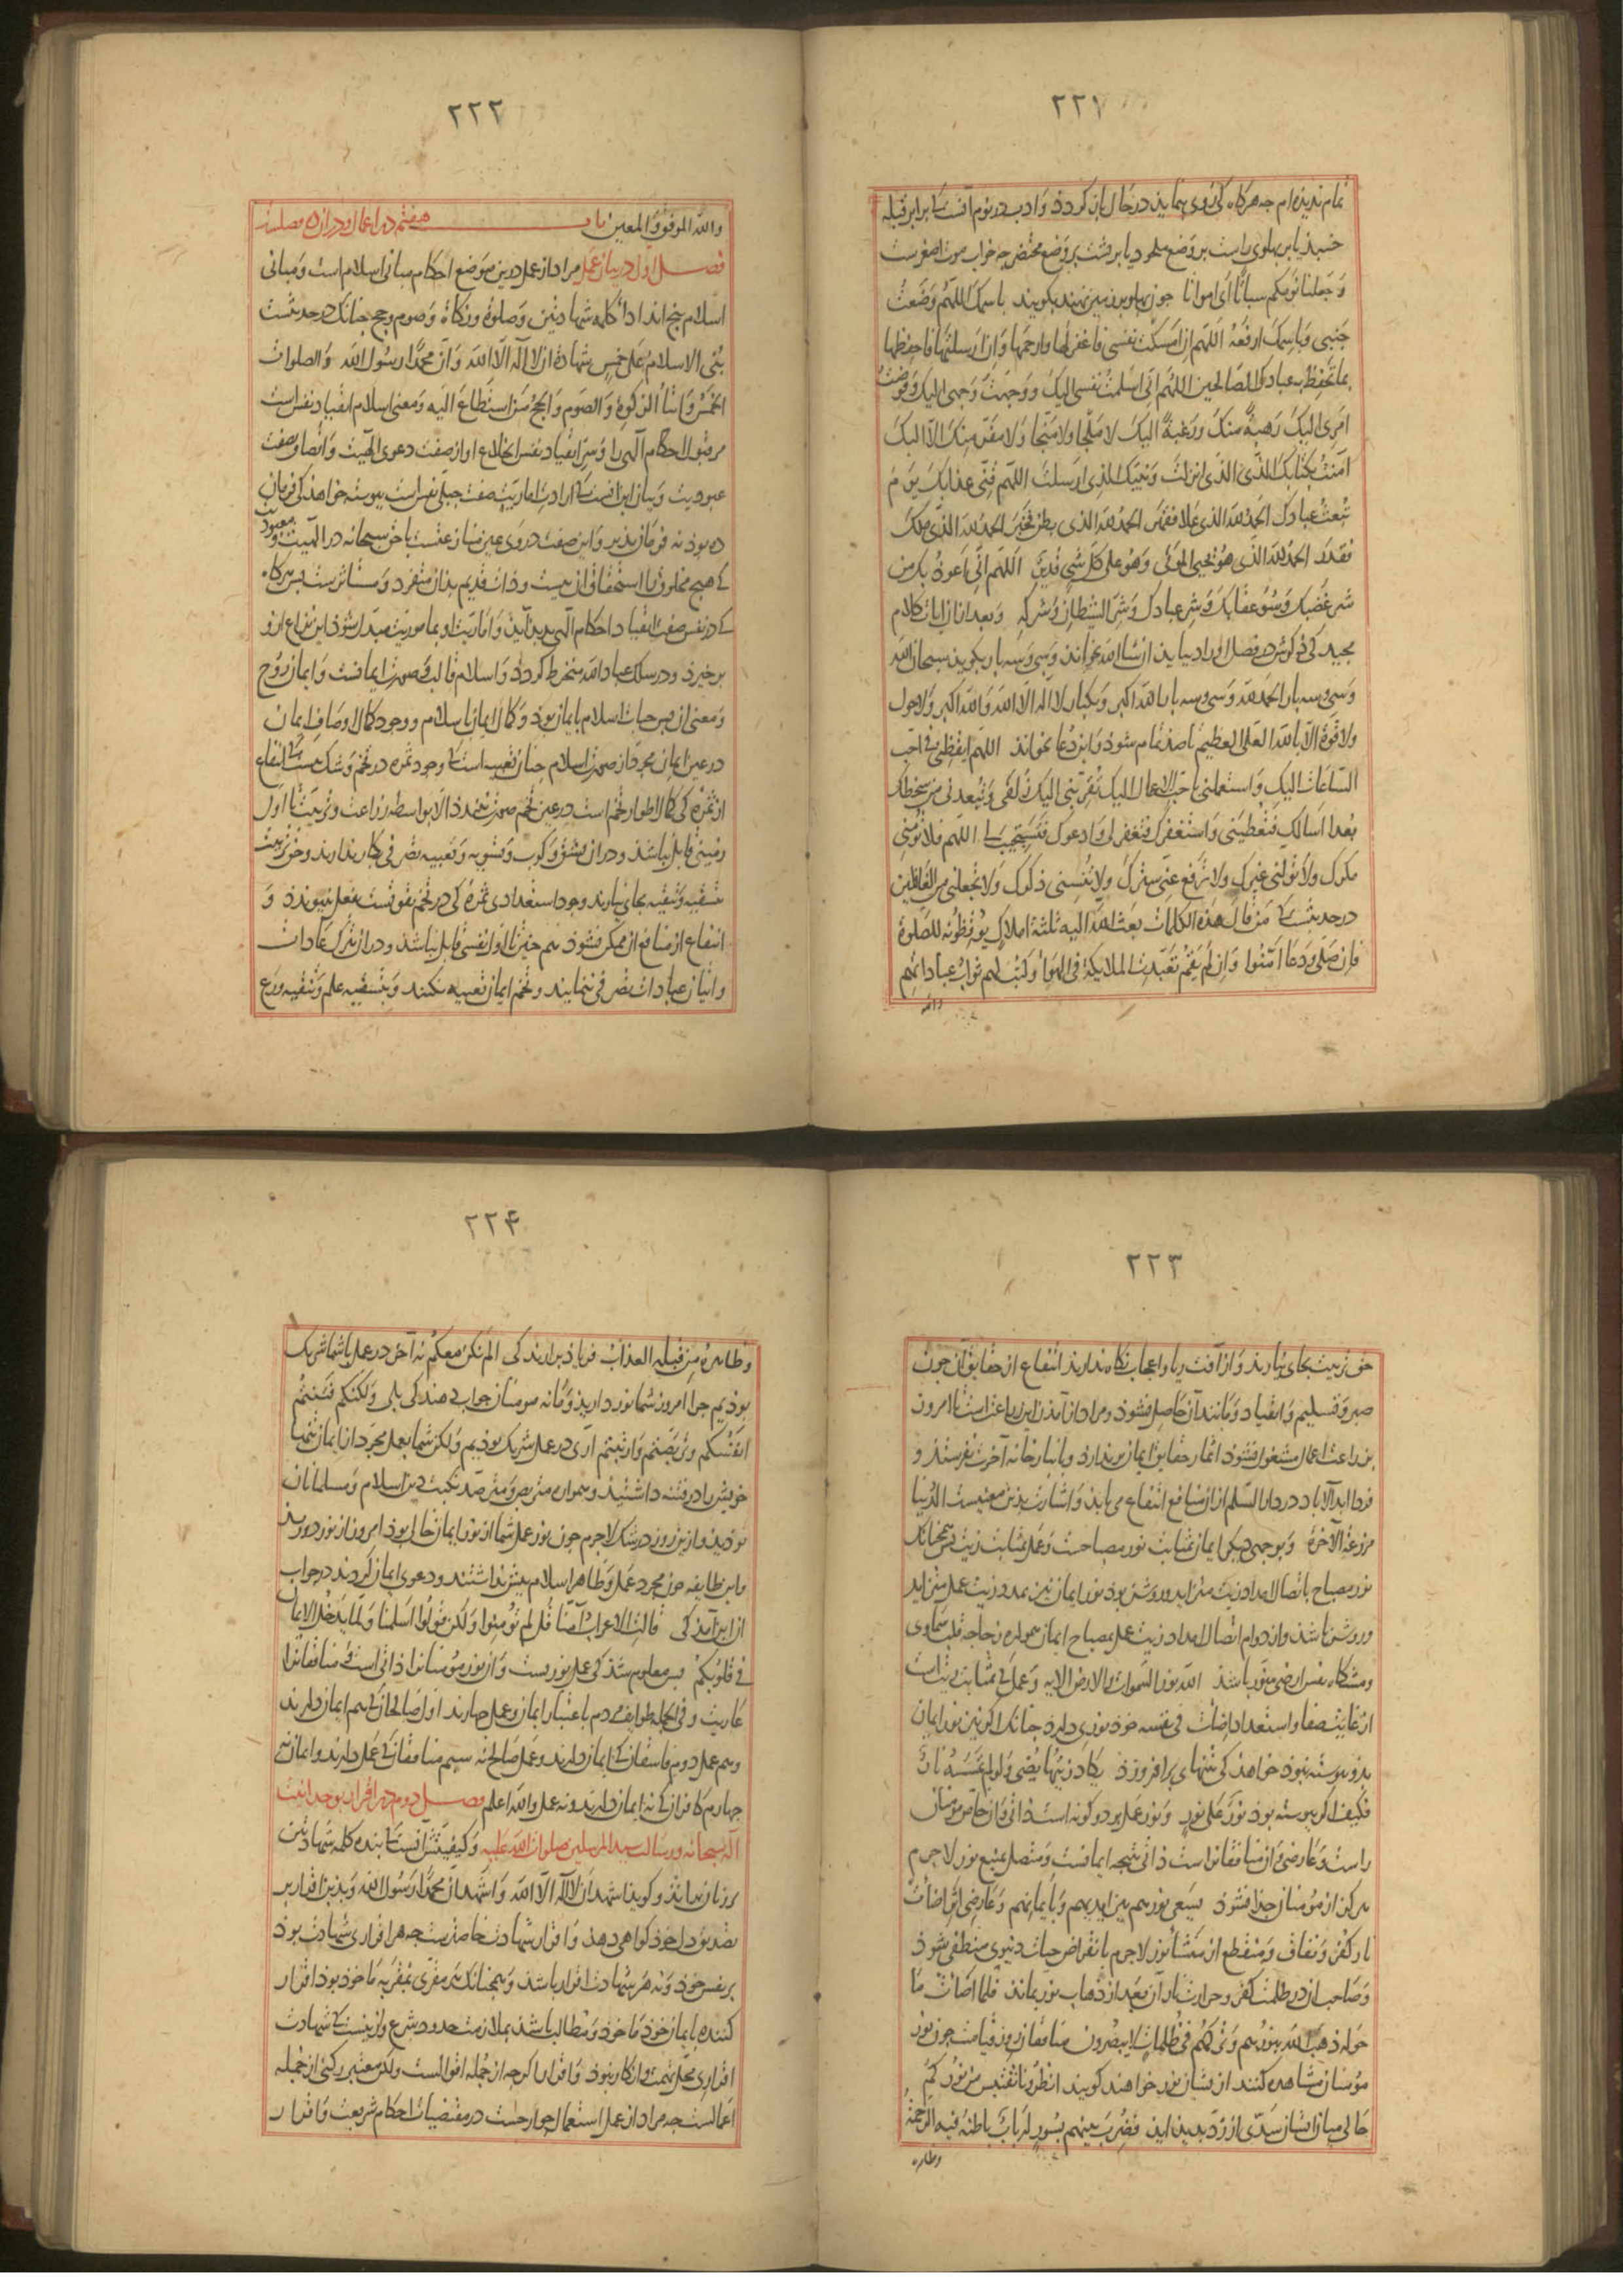 ٢٢١
تمام ندیده‌ام جه هرکاه کی روی بنماید در حال بازکردد و ادب در نوم آنست که برابر قبله
خسبد یا بر بهلوی راست بر وضع ملحود یا بر بشت بر وضع محتضر جه خواب موت اصغرست
و جعلنا نومکم سباتًا ای امواتا جون بهلو بر زمین نهند بکویند باسمک اللهم وضعت
جنبی و باسمک ارفعه اللهم ان امسکت نفسی فاغفر لها وارحمها و ان ارسلتها فاحفظها
بما تحفظ به عبادک الصالحین اللهم انی اسلمت نفسی الیک و وجهت وجهی الیک و فوضت
امری الیک رهبة منک و رغبة الیک لا ملجا ولا منجا ولا مفر منک الا الیک
آمنت بکتابک الذی انزلت و نبیک الذی ارسلت اللهم قنی عذابک یوم
تبعث عبادک الحمد لله الذی علا فقهر الحمد لله الذی بطن فخبر الحمد لله الذی ملک
فقدر الحمد لله الذی هو یحیی الموتی و هو علی کل شی قدیر اللهم انی اعوذ بک من
شر غضبک و سوء عقابک و شر عبادک و شر الشیطان و شرکه و بعد ازان ایات کلام
مجید کی ذکرش در فصل اوراد بیاید ان شا الله بخوانند و سی و سه بار بکوید سبحان الله
و سی و سه بار الحمد لله و سی و سه بار الله اکبر و یکبار لا اله الا الله و الله اکبر ولا حول
ولا قوة الا بالله العلی العظیم تا صد تمام شود و این دعا بخواند اللهم ایقظنی فی احب
الساعات الیک و استعملنی باحب الاعمال الیک تقربنی الیک زلفی و تبعدنی من سخطک
بعدا اسالک فتعطینی و استغفرک فتغفر لی و ادعوک فتستجیب لی اللهم فلا تومنی
مکرک ولا تولنی غیرک ولا ترفع عنی سترک ولا تنسنی ذکرک ولا تجعلنی من الغافلین
در حدیثست که من قال هذه الکلمات بعث الله الیه ثلثة املاک یوقظونه للصلوة
فان صلی و دعا امنوا و ان لم یقم تعبدت الملایکة فی الهوا و کتب لهم ثواب عبادتهم
٢٢٢
والله الموفق و المعین باب هفتم در اعمال و در ان ده فصلست
فصل اول در بیان عمل مراد از عمل درین موضع احکام مبانی اسلام است و مبانی
اسلام بنج اند اداء کلمه شهادتین و صلوة و زکاة و صوم و حج جنانک در حدیثست
بنی الاسلام علی خمس شهادة ان لا اله الا الله و ان محمدًا رسول الله و الصلوات
الخمس و ایتاء الزکوة و الصوم و الحج من استطاع الیه و معنی اسلام انقیاد نفس است
مر قبول احکام الهی را و سر انقیاد نفس انخلاع او از صفت دعوی الهیت و اتصاف بصفت
عبودیت و بیان این انست که ارادت امریت صفت جبلی نفس است بیوسته خواهد کی فرمان
ده بود نه فرمان بذیر و این صفت در وی عین منازعتست با حق سبحانه در الهیت و معبودیت
که هیج مخلوق را استحقاق ان نیست و ذات قدیم بدان متفرد و مستاثرست بس هرکاه
که در نفس صفت انقیاد احکام الهی بدید آید و امریت او بمامورییت مبدل شود این نزاع ازو
برخیزد و در سلک عباد الله منخرط کردد و اسلام قالب و صورت ایمانست و ایمان روح
و معنی ان بس حیات اسلام بایمان بود و کمال ایمان باسلام و وجود کمال اوصاف ایمان
در عین ایمان مجرد از صورت اسلام جنان تعبیه است که وجود ثمره در تخم و شک نیست که انتفاع
از ثمره کی کمال اطوار تخم است در عین تخم صورت نبندد الا بواسطه زراعت و تربیت تا اول
زمینی قابل نباشد و دران بشق و کرب و تسویه و تعبیه تصرفی بکار ندارند و حق تربیت
بتسقیه و تنقیه بجای نیارند وجود استعدادی ثمره کی در تخم بقوتست بفعل نبیوندد و
انتفاع از منافع ان ممکن نشود هم جنین تا اول نفسی قابل نباشد و دران بترک عادات
و اتیان عبادات تصرفی ننمایند و تخم ایمان تعبیه نکنند و بتسقیه علم و تنقیه ورع
٢٢٣
حق تربیت بجای نیارند و از آفت ریا و اعجاب نکاه ندارند انتفاع از حقایق آن جون
صبر و تسلیم و انقیاد و مانند آن حاصل نشود و مراد از آمدن این زراعت است تا امروز
بزراعت اعمال مشغول نشود اثمار حقایق ایمان بر ندارد و بانبار خانه آخرت نفرستد و
فردا ابد الاباد در دار السلم از ان منافع انتفاع می یابد و اشارت بدین معنیست الدنیا
مزرعة الآخرة و بوجهی دیکر ایمان بمثابت نور مصباحست و عمل بمثابت زیت بس همجنانک
نور مصباح باتصال امداد زیت متزاید و روشن بود نور ایمان نیز بمدد زیت عمل متزاید
و روشن باشد و از دوام اتصال امداد زیت عمل بمصباح ایمان همواره زجاجه قلب سماوی
و مشکاة نفس ارضی منور باشد الله نور السموات والارض الایه و عمل کی بمثابت زیت است
از غایت صفا و استعداد اضات فی نفسه خود نوری دارد جنانک اکر نیز نور ایمان
بدو بیوسته نبود خواهد کی تنهای برافروزد یکاد زیتها یضی ولو لم تمسسه نار
فکیف اکر بیوسته بود نور علی نور و نور عمل بر دو کونه است ذاتی و ان خاص مومنان
راست و عارضی و ان منافقانراست ذاتی نتیجه ایمانست و متصل بمنبع نور لاجرم
هرکز از مؤمنان جدا نشود یسعی نورهم بین ایدیهم و بایمانهم و عارضی اثر اضات
نار کفر و نفاق و منقطع از منشأ نور لاجرم بانقراض حیات دنیوی منطفی شود
و صاحب ان در ظلمت کفر و حرارت نار آن بعد از ذهاب نور بماند فلما اضات ما
حوله ذهب الله بنورهم و ترکهم فی ظلمات لا یبصرون منافقان روز قیامت جون نور
مؤمنان مشاهده کنند از یشان نور خواهند کویند انظرونا نقتبس من نورکم
حالی میان ایشان سدی از رد بدید اید فضرب بینهم بسور له باب باطنه فیه الرحمة
وظاهره
٢٢۴
وظاهره من قبله العذاب فریاد برارند کی الم نکن معکم نه آخر در عمل با شما شریک
بودیم جرا امروز شما نور دارید و ما نه مومنان جواب دهند کی بلی ولکنکم فتنتم
انفسکم و تربصتم و ارتبتم آری در عمل شریک بودیم ولکن شما بعمل مجرد از ایمان تنها
خویش را در فتنه داشتید و همواره متربص و مترصد نکبت دین اسلام و مسلمانان
بودید و ازین روز در شک لاجرم جون نور عمل شما از نور ایمان خالی بود امروز از نور دورید
و این طایفه جون مجرد عمل و ظاهر اسلام بیش نداشتند و دعوی ایمان کردند در جواب
از این آمد کی قالت الاعراب آمنا قل لم تؤمنوا ولکن قولوا اسلمنا ولما یدخل الایمان
فی قلوبکم بس معلوم شد کی عمل نوریست و آن نور مؤمنانرا ذاتی است و منافقانرا
عاریت و فی الجمله طوایف مردم باعتبار ایمان و عمل جهارند اول صالحان که هم ایمان دارند
و هم عمل دوم فاسقان که ایمان دارند و عمل صالح نه سیم منافقان که عمل دارند و ایمان نه
جهارم کافران که نه ایمان دارند و نه عمل والله اعلم فصل دوم در اقرار بوحدانیت
اله سبحانه و رسالت سید المرسلین صلوات الله علیه و کیفیتش آنست که بنده کلمه شهادتین
بر زبان براند و کوید اشهد ان لا اله الا الله و اشهد ان محمدًا رسول الله و بدین اقرار بر
تصدیق دل خود کواهی دهد و اقرار شهادت خاصست جه هر اقراری شهادت بود
بر نفس خود و نه هر شهادت اقرار باشد و همجنانک هر مقری بمقر به ماخوذ بود اقرار
کننده بایمان خود ماخوذ و مطالب باشد بملازمت حدود شرع و ازینست که شهادت
اقراری محل تهمت و انکار نبود و اقرار اکرجه از جمله اقوالست ولکن معتبر رکنی از جمله
اعمالست جه مراد از عمل استعمال جوارحست در مقتضیات احکام شریعت و اقرار